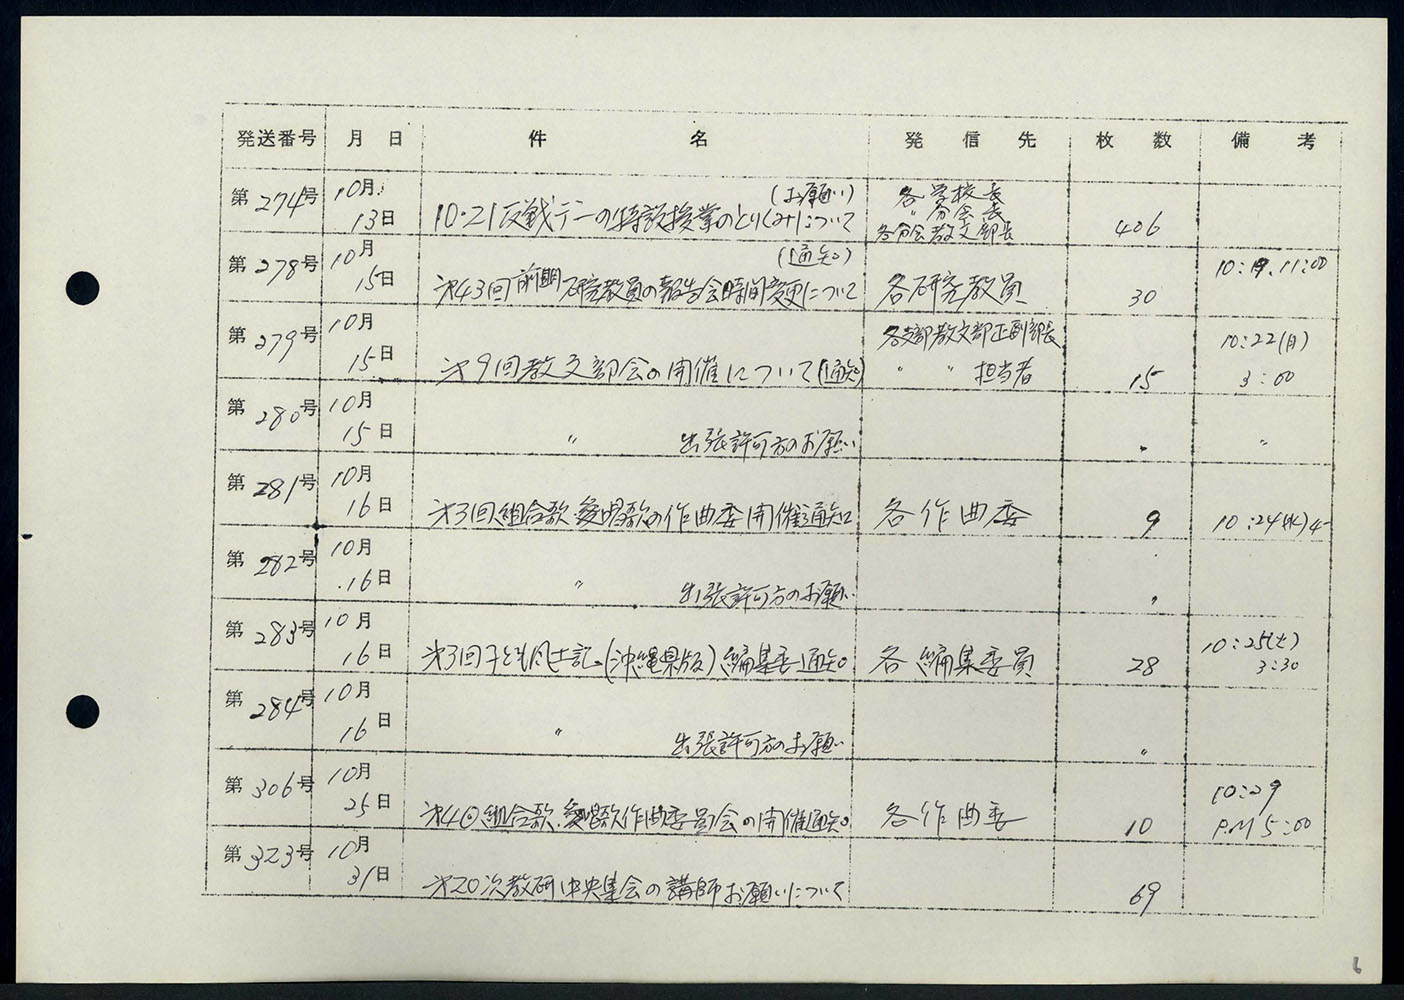 発送番号 月 日 件 名 発 信 先 枚 数 備 考
第274号 10月13日 10・21反戦デーの特設授業のとりくみについて (お願い) 各学校長 406
〃 分会長
各分会教文部長
第278号 10月15日 第43回前期研究教員の報告会時間変更について (通知) 各研究教員 30 10:19. 11:00
第279号 10月15日 第9回教文部会の開催について(通知) 各支部教文部正副部長 15 10:22(月)
〃 〃 担当者 3:00
第280号 10月15日 〃 出張許可方のお願い 〃 〃
第281号 10月16日 第3回組合歌、愛唱歌の作曲委開催通知 各作曲委 9 10:24(水)4-
第282号 10月16日 〃 出張許可方のお願い 〃
第283号 10月16日 第3回子ども風土記(沖縄県版)編集委通知 各編集委員 28 10:25(土)
3:30
第284号 10月16日 〃 出張許可方のお願い 〃
第306号 10月25日 第4回組合歌、愛唱歌作曲委員会の開催通知 各作曲委 10 10:29
P.M 5:00
第323号 10月31日 第20次教研中央集会の講師お願いについて 69
6